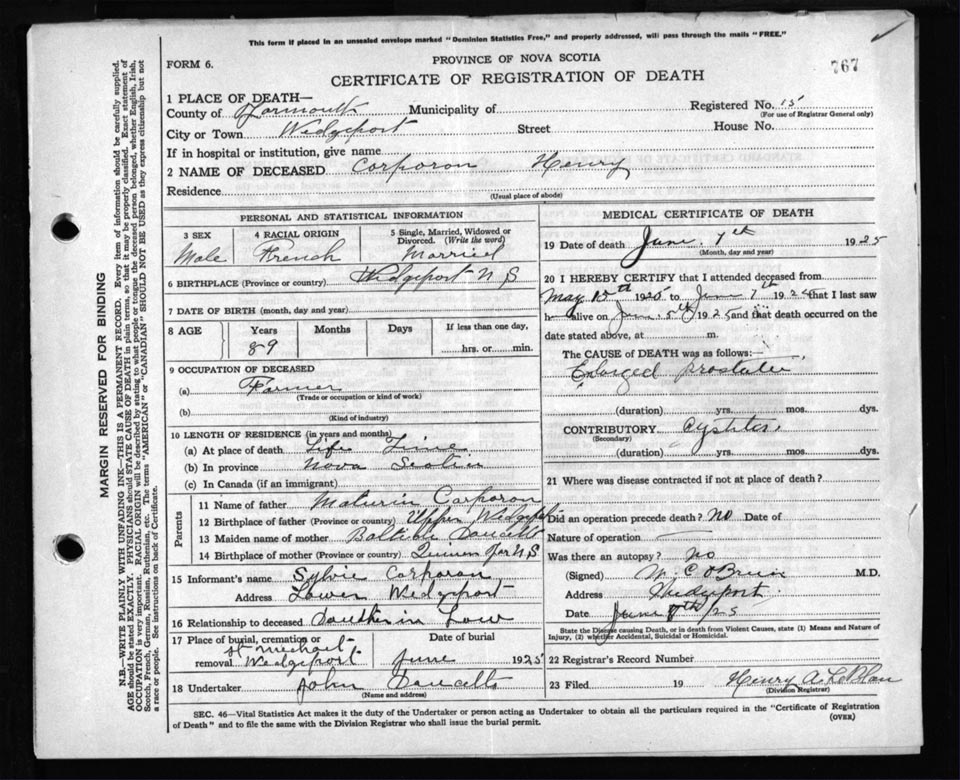 This form if placed in an unsealed envelope marked "Dominion Statistics Free," and properly addressed, will pass through the mails "FREE."
FORM 6.
PROVINCE OF NOVA SCOTIA
767
CERTIFICATE OF REGISTRATION OF DEATH
1 PLACE OF DEATH—
County of Yarmouth Municipality of Registered No. 15
(For use of Registrar General only)
City or Town Wedgeport Street House No.
If in hospital or institution, give name
2 NAME OF DECEASED Corporon Henry
Residence
(Usual place of abode)
PERSONAL AND STATISTICAL INFORMATION
3 SEX 4 RACIAL ORIGIN 5 Single, Married, Widowed or Divorced. (Write the word)
Male French Married
6 BIRTHPLACE (Province or country) Wedgeport N S
7 DATE OF BIRTH (month, day and year)
8 AGE Years Months Days If less than one day,
89 hrs. or min.
9 OCCUPATION OF DECEASED
(a) Farmer
(Trade or occupation or kind of work)
(b)
(Kind of industry)
10 LENGTH OF RESIDENCE (in years and months)
(a) At place of death Life Time
(b) In province Nova Scotia
(c) In Canada (if an immigrant)
Parents
11 Name of father Maturin Corporon
12 Birthplace of father (Province or country) Upper Wedgeport
13 Maiden name of mother Doucette
14 Birthplace of mother (Province or country) N S
15 Informant's name Sylvie Corporon
Address Lower Wedgeport
16 Relationship to deceased Daughter in Law
17 Place of burial, cremation or removal St Michael Wedgeport Date of burial June 1925
18 Undertaker John Doucette
(Name and address)
MEDICAL CERTIFICATE OF DEATH
19 Date of death June 7th 1925
(Month, day and year)
20 I HEREBY CERTIFY that I attended deceased from
May 10th 1925 to June 7th 1925 that I last saw
h alive on June 5th 1925 and that death occurred on the
date stated above, at m.
The CAUSE OF DEATH was as follows:—
Enlarged prostate
(duration) yrs. mos. dys.
CONTRIBUTORY Cystitis
(Secondary)
(duration) yrs. mos. dys.
21 Where was disease contracted if not at place of death?
Did an operation precede death? No Date of
Nature of operation —
Was there an autopsy? No
(Signed) W. C O'Brien M.D.
Address Wedgeport
Date June /25
State the Disease causing Death, or in death from Violent Causes, state (1) Means and Nature of Injury, (2) whether Accidental, Suicidal or Homicidal.
22 Registrar's Record Number
23 Filed 19 Henry A. LeBlanc
(Division Registrar)
SEC. 46—Vital Statistics Act makes it the duty of the Undertaker or person acting as Undertaker to obtain all the particulars required in the "Certificate of Registration
of Death" and to file the same with the Division Registrar who shall issue the burial permit.
(OVER)
MARGIN RESERVED FOR BINDING
N.B.—WRITE PLAINLY WITH UNFADING INK—THIS IS A PERMANENT RECORD. Every item of information should be carefully supplied.
AGE should be stated EXACTLY. PHYSICIANS should STATE CAUSE OF DEATH in plain terms, so that it may be properly classified. Exact statement of
OCCUPATION is very important. RACIAL ORIGIN will be described by stating to what people or tongue the deceased person belonged, whether English, Irish,
Scotch, French, German, Russian, Ruthenian, etc. The terms "AMERICAN" or "CANADIAN" SHOULD NOT BE USED as they express citizenship but not
a race or people. See instructions on back of Certificate.